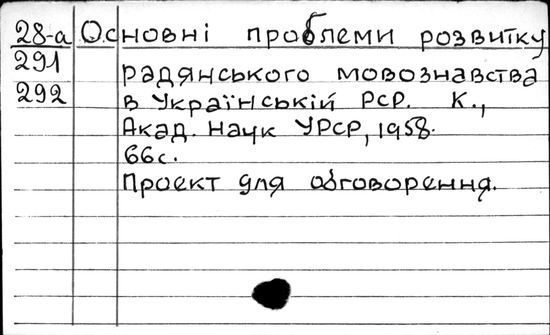 28-а Основні проблеми розвитку
291 радянського мовознавства
292 в Українській РСР. К.,
Акад. Наук УРСР, 1958.
66с.
Проект для обговорення.